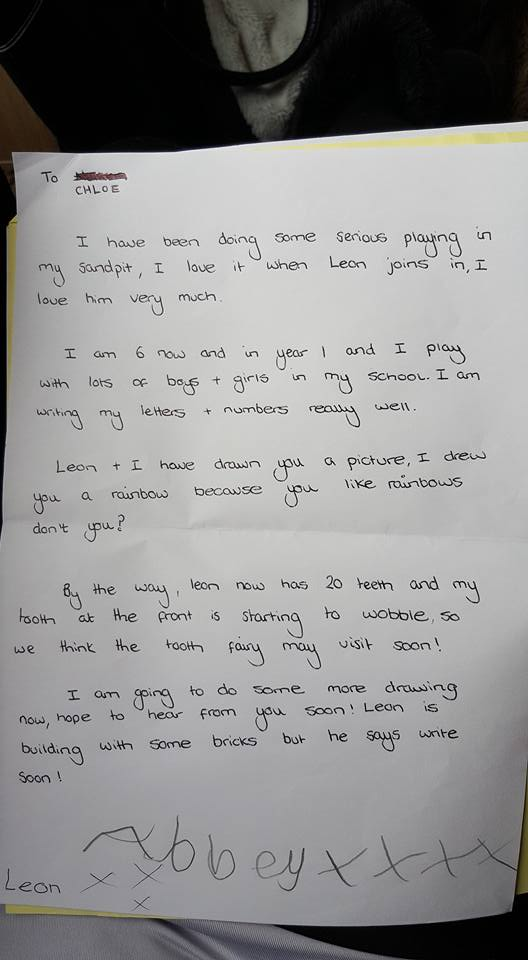 To
CHLOE
I have been doing some serious playing in
my sandpit, I love it when Leon joins in, I
love him very much.
I am 6 now and in year 1 and I play
with lots of boys + girls in my school. I am
writing my letters + numbers really well.
Leon + I have drawn you a picture, I drew
you a rainbow because you like rainbows
don't you?
By the way, leon now has 20 teeth and my
tooth at the front is starting to wobble, so
we think the tooth fairy may visit soon!
I am going to do some more drawing
now, hope to hear from you soon! Leon is
building with some bricks but he says write
soon!
Abbey x x x x
Leon x x
x